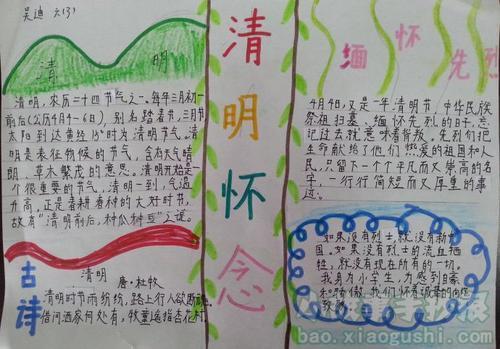 吴迪 六(3)
清 明
清明,农历二十四节气之一。每年三月初一
前后(公历4月4-6日),别名踏春节,三月节
太阳到达黄经15°时为清明节气。清
明是表征物候的节气,含有天气晴
朗、草木繁茂的意思。清明开始是
个很重要的节气,清明一到,气温
升高,正是春耕春种的大好时节,
故有“清明前后,种瓜种豆”之说。
古诗
清明
唐·杜牧
清明时节雨纷纷,路上行人欲断魂
借问酒家何处有,牧童遥指杏花村
清明怀念
缅怀先烈
4月4日,又是一年清明节,中华民族
祭祖扫墓、缅怀先烈的日子。忘
记过去就意味着背叛。先烈们把
生命献给了他们热爱的祖国和人
民,只留下一个个平凡而又崇高的名
字,一行行简短而又厚重的事
迹。
如果没有烈士,就没有新中
国。如果没有烈士的流血牺
牲,就没有现在所有的一切。
我身为小学生,为感到自豪
和骄傲,我们怀着诚挚的
bao.xiaogushi.com